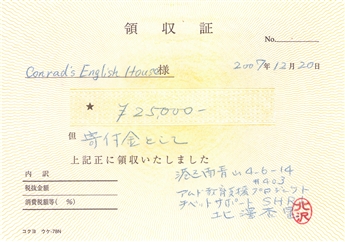 領収証
No.
Conrad's English House 様
2007年12月20日
★ ¥25,000-
但 寄付金として
上記正に領収いたしました
内訳
税抜金額
消費税額等( %)
港区南青山4-6-14
#403
アムド教育支援プロジェクト
チベットサポート SHR
北澤杏里
北沢
コクヨ ウケ-78N